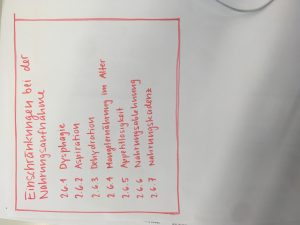 Einschränkungen bei der
Nahrungsaufnahme
2.6.1 Dysphagie
2.6.2 Aspiration
2.6.3 Dehydration
2.6.4 Mangelernährung im Alter
2.6.5 Appetitlosigkeit
2.6.6 Nahrungsablehnung
2.6.7 Nahrungskadenz